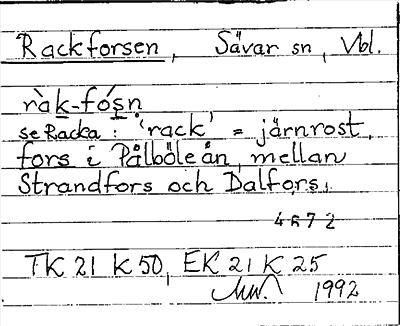 Rackforsen, Sävar sn, Vbl.
ràk-fós̩n̩
se Racka: 'rack' = järnrost,
fors i Pålböleån, mellan
Strandfors och Dalfors.
4672
TK 21 K 50, EK 21 K 25
1992